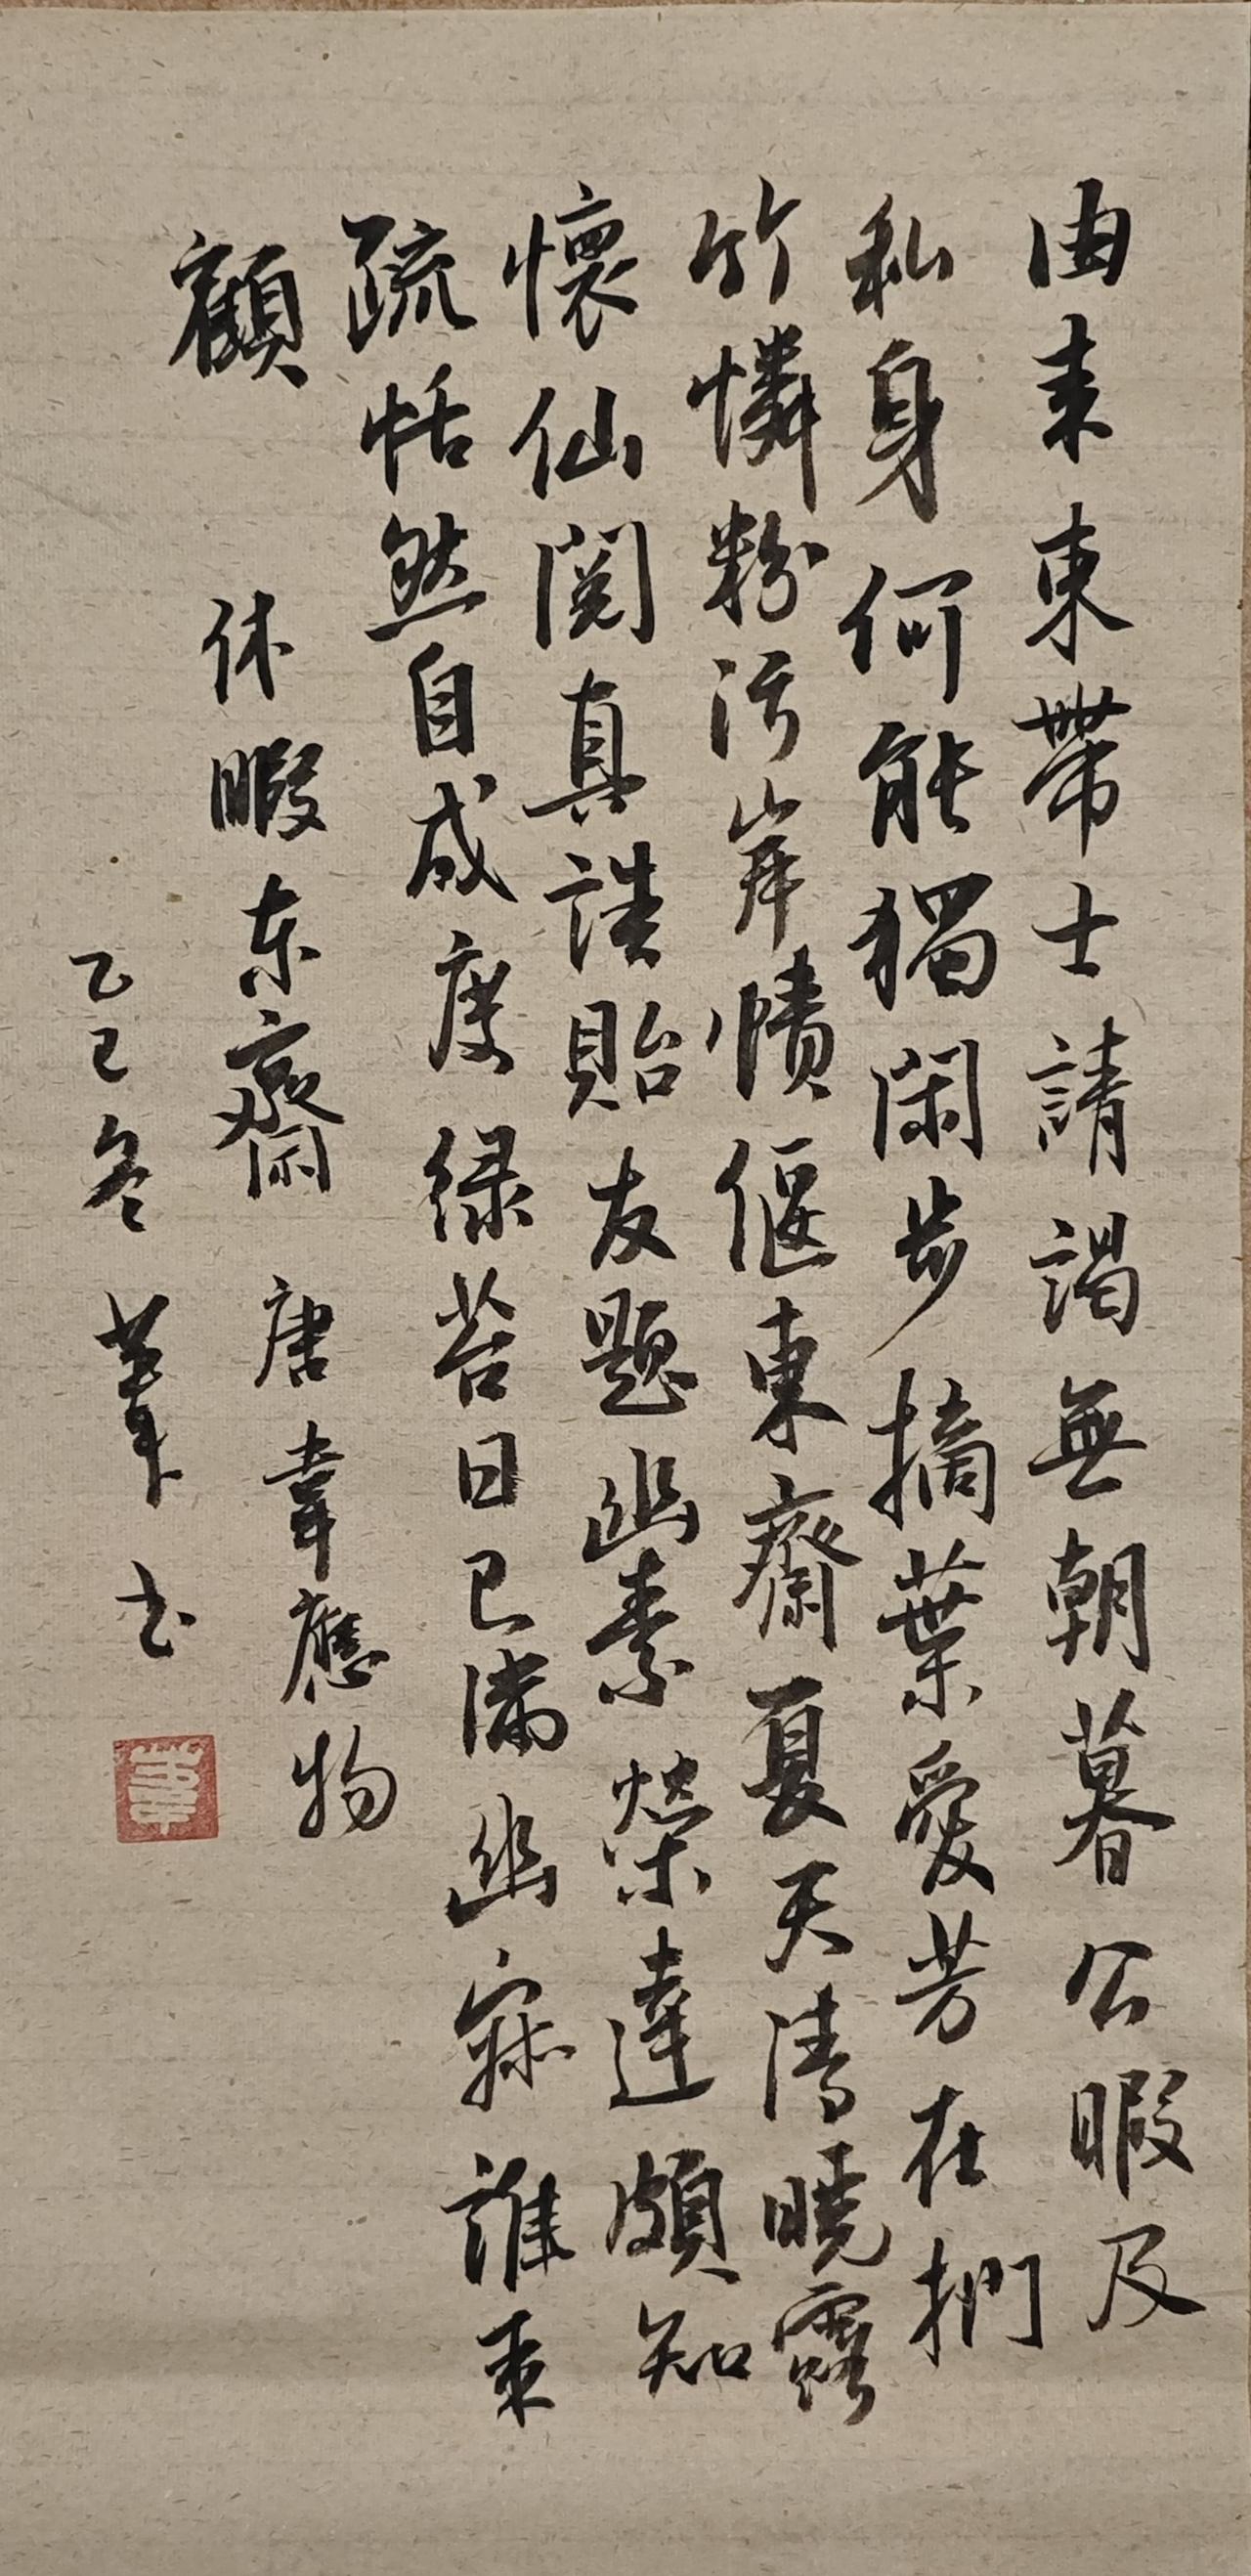 由来東帶士請謁無朝暮公暇及
私身何能獨閑步摘葉愛芳在捫
竹憐粉污岸幘偃東齋夏天清曉露
懷仙閱真誥貽友題幽素榮達頗知
疏恬然自成度緑苔日已滿幽寂誰来
顧
休暇东齋 唐韋應物
乙巳冬 书